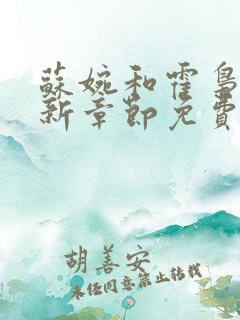 蘇婉和霍
新章節免費
胡善安
未經同意禁止轉載